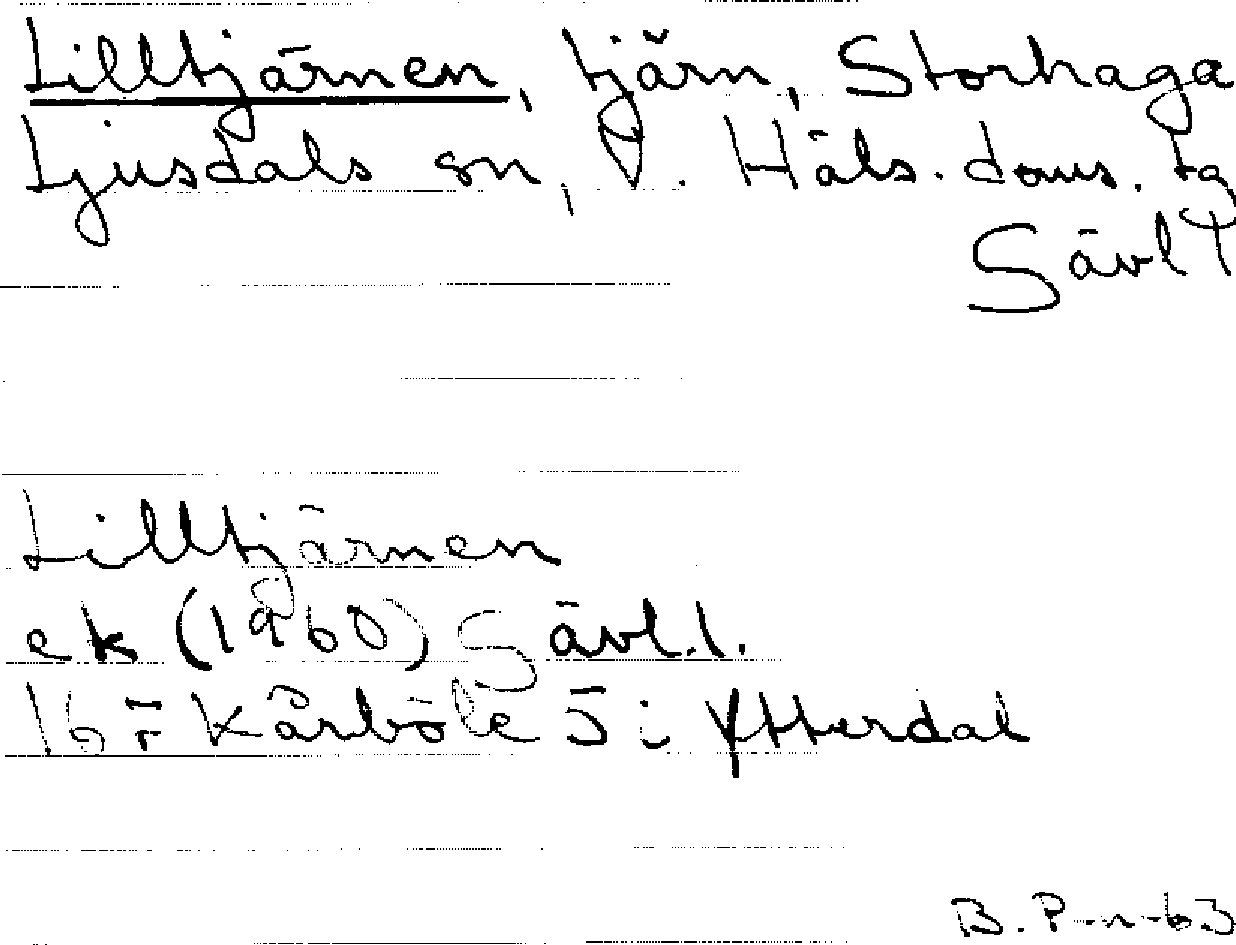 Lilltjärnen, tjärn, Storhaga
Ljusdals sn, V. Häls. doms. tg
Gävl. l
Lilltjärnen
ek (1960) Gävl. l.
16 Kårböle 5 i Ytterdal
B. P-n-63